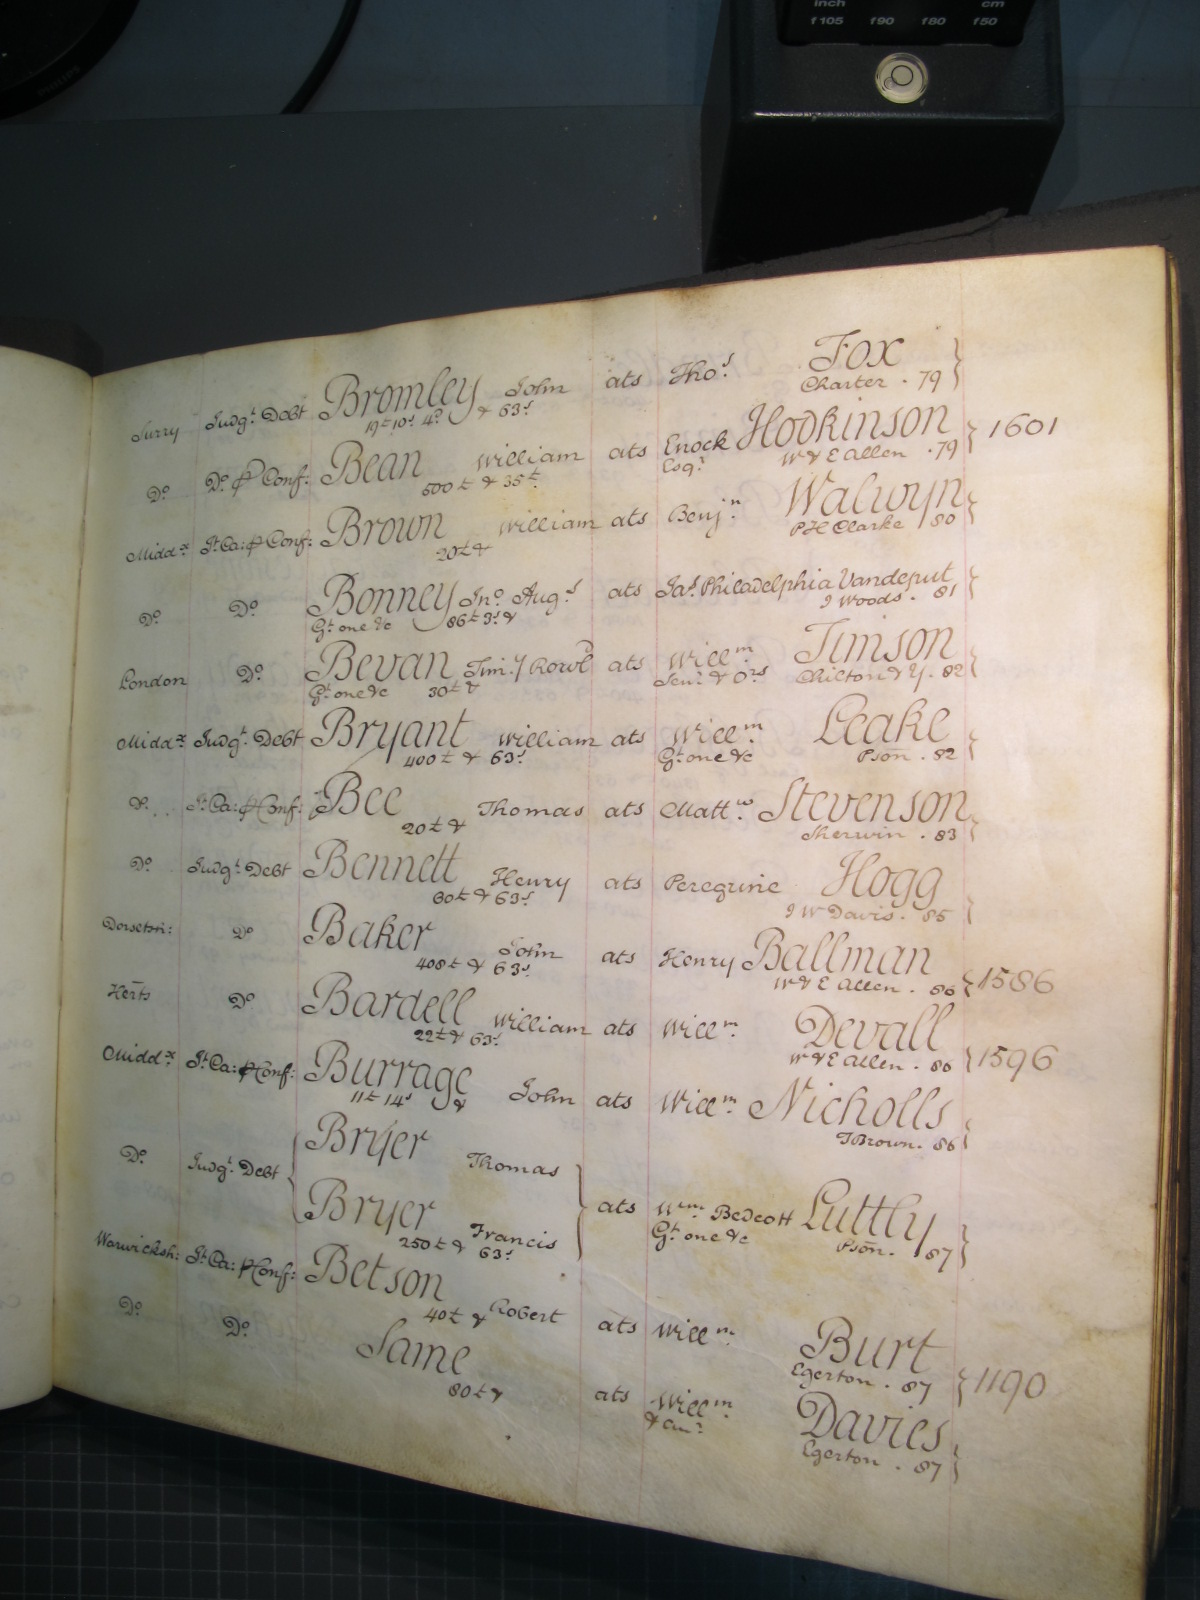 inch cm
f105 f90 f80 f50
PHILIPS
Surry Judgt. Debt Bromley John ats Thos. Fox
19£ 10s. 4d. & 63s. Charter . 79
Do. Do. & Conf: Bean William ats Enock Hodkinson 1601
500£ & 35£. Esqr. W & E Allen . 79
Middx. St. Ca: & Conf: Brown William ats Benjn. Walwyn
20£ & P H Clarke 80
Do. Do. Bonney Jno. Augs. ats Jas. Philadelphia Vandeput
Gt. one &c 86£ 3s. & J Woods . 81
London Do. Bevan Tim:y Rowld ats Willm. Timson
Gt. one &c 30£ & Senr. & Ors Chilton & Y. 82
Middx. Judgt. Debt Bryant William ats Willm. Leake
400£ & 63s. Gt. one &c Pson . 82
Do. St. Ca: & Conf: Bee Thomas ats Mattw. Stevenson
20£ & Sherwin . 83
Do. Judgt. Debt Bennett Henry ats Peregrine Hogg
60£ & 63s. J W Davis . 85
Dorseton: Do Baker John ats Henry Ballman 1586
408£ & 63s. W & E Allen . 86
Herts Do. Bardell William ats Willm. Devall 1596
22£ & 63s. W & E Allen . 86
Middx. St. Ca: & Conf: Burrage John ats Willm. Nicholls
11£ 14s & T Brown . 86
Do. Judgt. Debt Bryer Thomas
Bryer Francis ats Wm. Bedcott Luttly
250£ & 63s. Gt. one &c Pson . 87
Warwicksh: St. Ca: & Conf: Betson Robert ats Willm. Burt 1190
40£ & Egerton . 87
Do. Do. Same ats Willm. Davies
80£ & & Anr. Egerton . 87